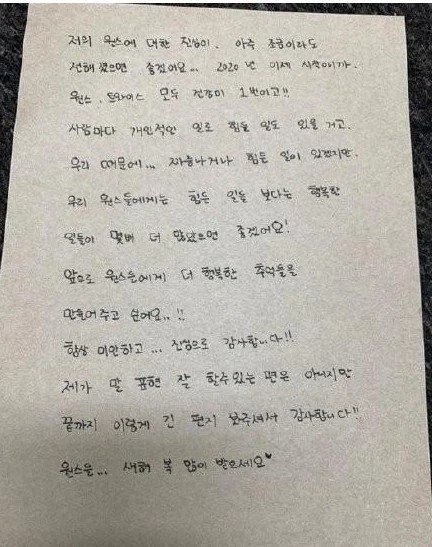 저의 원스에 대한 진심이. 아주 조금이라도
전해졌으면 좋겠어요... 2020년 이제 시작이니까.
원스, 트와이스 모두 건강이 1번이고!!
사람마다 개인적인 일로 힘들 일도 있을 거고.
우리 때문에... 짜증나거나 힘든 일이 있겠지만.
우리 원스들에게는 힘든 일들 보다는 행복한
일들이 몇배 더 많았으면 좋겠어요!
앞으로 원스들에게 더 행복한 추억들을
만들어주고 싶어요..!!
항상 미안하고... 진심으로 감사합니다!!
제가 말 표현 잘 할수있는 편은 아니지만
끝까지 이렇게 긴 편지 봐주셔서 감사합니다!!
원스들... 새해 복 많이 받으세요♥